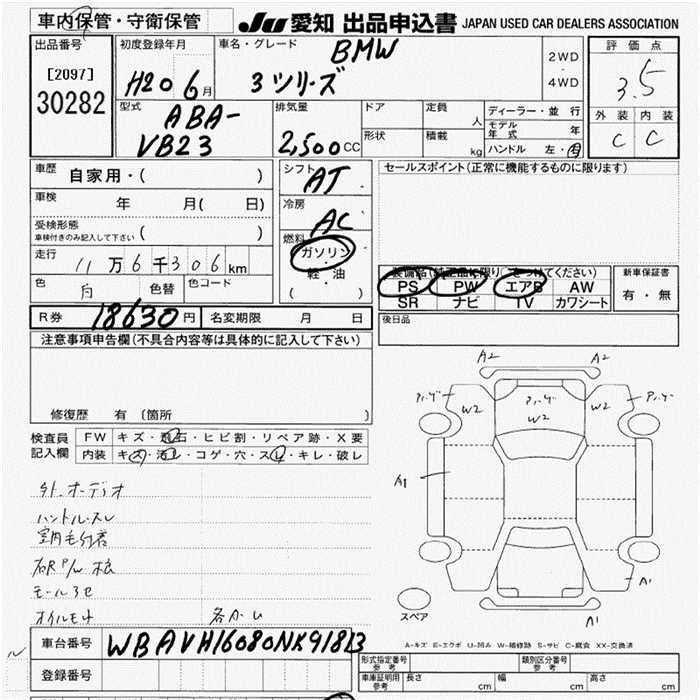 車内保管・守衛保管
JU 愛知 出品申込書 JAPAN USED CAR DEALERS ASSOCIATION
出品番号
[2097]
30282
初度登録年月
H20 6月
車名・グレード
BMW
3シリーズ
2WD
・
4WD
評価点
3.5
外装 内装
C C
型式
ABA-
VB23
排気量
2,500cc
ドア
形状
定員 人
積載 kg
ディーラー・並行
モデル年式 年
ハンドル 左・右
車歴 自家用・( )
車検 年 月( 日)
受検形態
車検付きのみ記入して下さい ( )
走行 11万6千306km
色 白 色替 色コード
シフト AT
冷房 AC
燃料 ガソリン
・
軽・油
( )
セールスポイント(正常に機能するものに限ります)
装備名(純正品に限り○をつけてください)
PS PW エアB AW
SR ナビ TV カワシート
新車保証書
有・無
R券 18630円 名変期限 月 日
後日品
注意事項申告欄(不具合内容等は具体的に記入して下さい)
修復歴 有(箇所 )
検査員 記入欄
FW キズ・飛石・ヒビ割・リペア跡・X要
内装 キズ・汚レ・コゲ・穴・スレ・キレ・破レ
外.オーディオ
ハンドルスレ
室内毛付着
モール3セ
A2 A2
W2 W2 W2
A1
A1
A1
スペア
A-キズ E-エクボ U-凹み W-補修跡 S-サビ C-腐食 XX-交換済
車台番号 WBAVH16080NK91813
登録番号
形式指定番号 参考
類別区分番号 参考
車庫証明用 参考 長さ cm 幅 cm 高さ cm